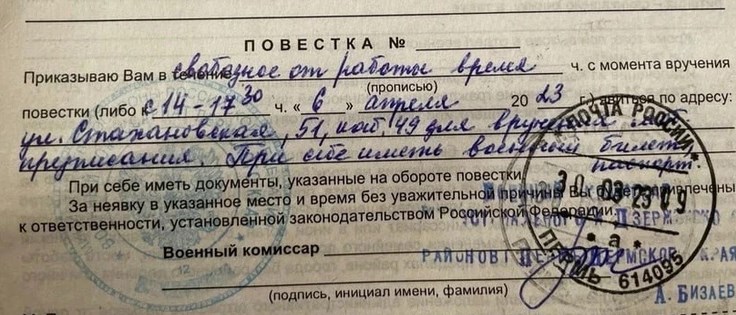 ПОВЕСТКА №
Приказываю Вам в течение свободное от работы время ч. с момента вручения
(прописью)
повестки (либо к с 14-17 30 ч. « 6 » апреля 20 23 г.) явиться по адресу:
ул. Стахановская, 51, каб 49 для вручения моб
предписания. При себе иметь военный билет
паспорт.
При себе иметь документы, указанные на обороте повестки.
За неявку в указанное место и время без уважительной причины Вы будете привлечены
к ответственности, установленной законодательством Российской Федерации.
Военный комиссар
(подпись, инициал имени, фамилия)
ПОЧТА РОССИИ
30 03 23 09
* а *
ПЕРМЬ 614095
ДЗЕРЖИНСКО
РАЙОНОВ Г ПЕРМЬ ПЕРМСКОГО КРАЯ
А. БИЗЯЕВ